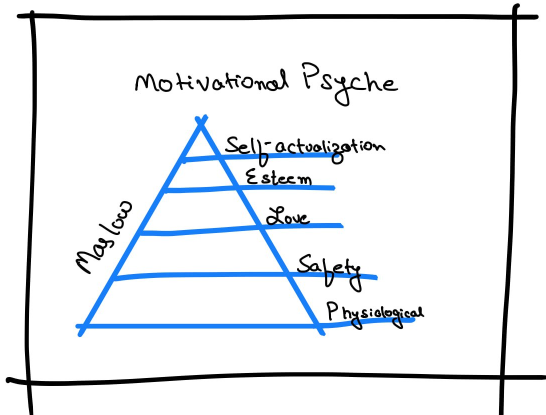 Motivational Psyche
Self-actualization
Esteem
Love
Maslow
Safety
Physiological